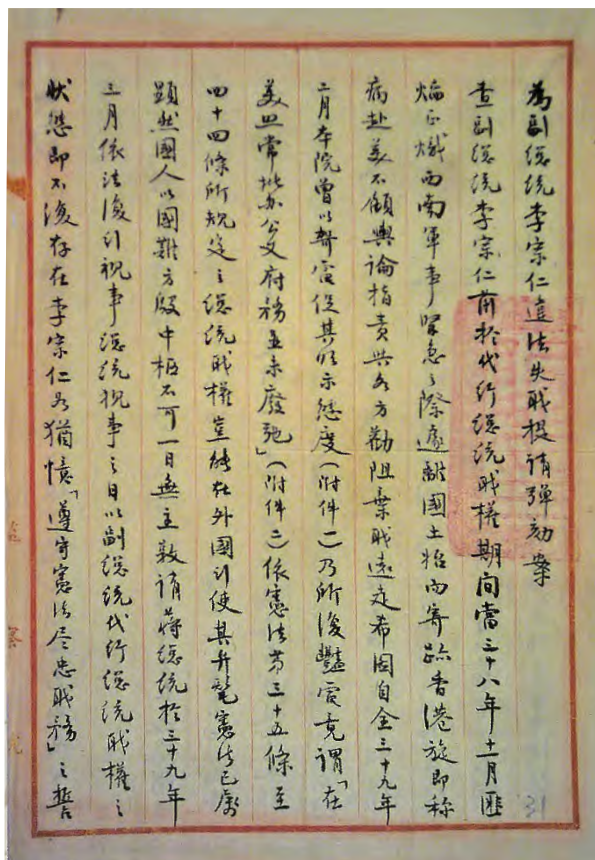 為副總統李宗仁違法失职提請彈劾案
查副總統李宗仁前於代行總統职權期間當三十八年十一月匪
焰正熾西南軍事緊急之際遽離國土始而寄跡香港旋即称
病赴美不顧輿論指責与各方勸阻棄职遠走希圖自全三十九年
二月本院曾以寄電促其明示態度（附件一）乃所復電竟謂「在
美照常批办公文府務並未廢弛」（附件二）依憲法第三十五條至
四十四條所規定之總統职權豈能在外國行使其弁髦憲法已屬
顯然國人以國難方殷中樞不可一日無主敦請蔣總統於三十九年
三月依法復行視事總統視事之日以副總統代行總統职權之
狀態即不復存在李宗仁若猶憶「遵守憲法尽忠职務」之誓
31